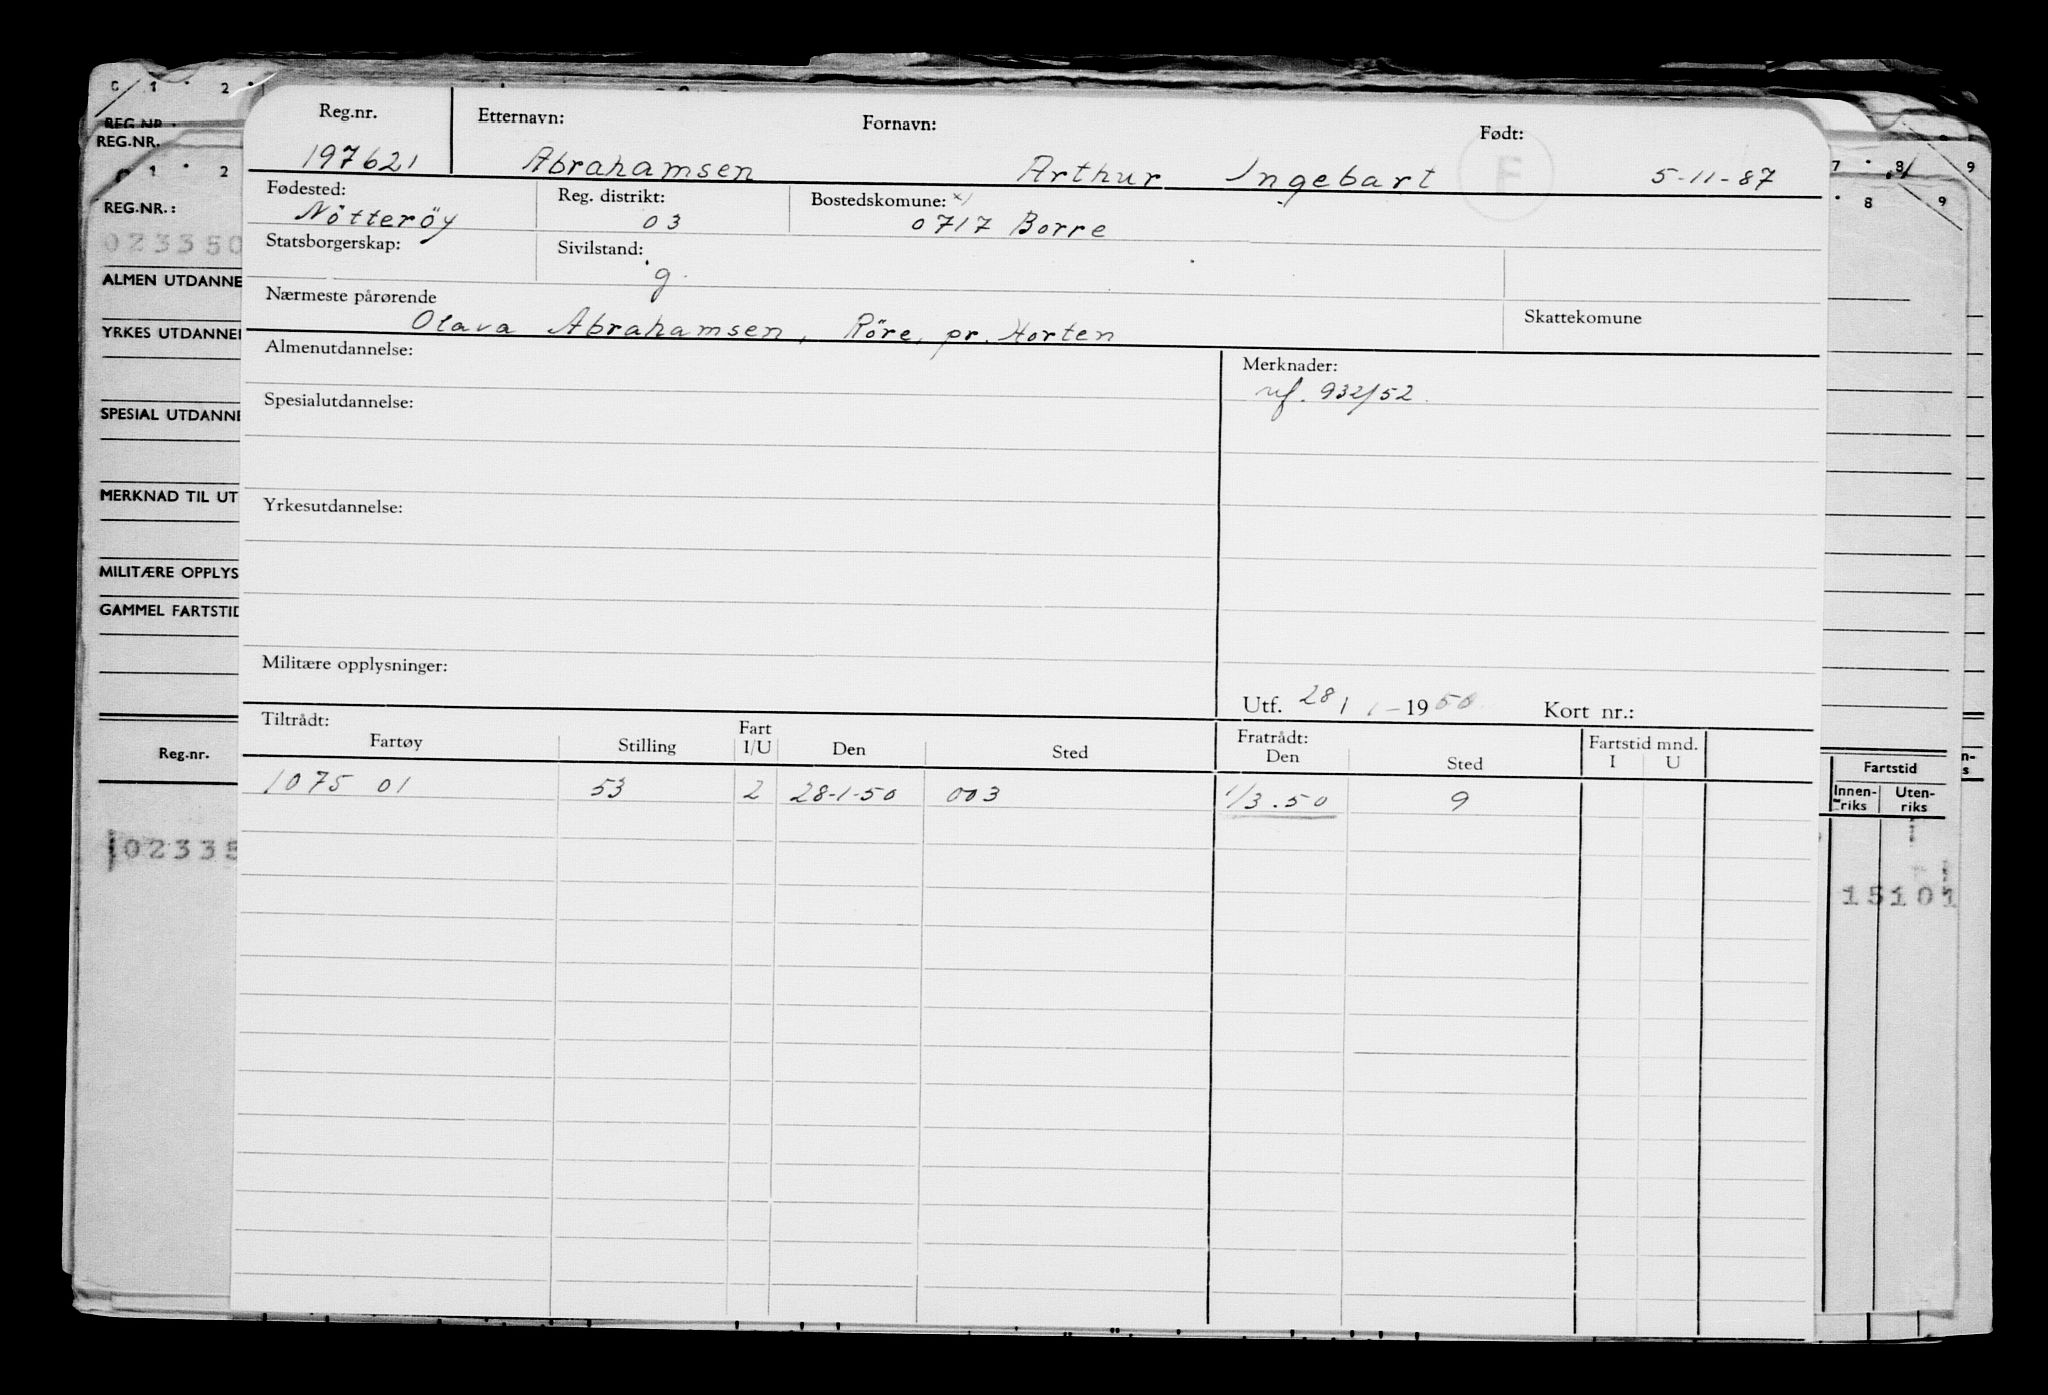 G 1 2
REG.NR.
REG.NR.
1 2
REG.NR.:
023350
ALMEN UTDANNE
YRKES UTDANNE
SPESIAL UTDANNE
MERKNAD TIL UT
MILITÆRE OPPLYS
GAMMEL FARTSTID
Reg.nr.
02335
Reg.nr. Etternavn: Fornavn: Født:
197621 Abrahamsen Arthur Ingebart E 5-11-87
Fødested: Reg. distrikt: Bostedskomune: x)
Nötteröy 03 0717 Borre
Statsborgerskap: Sivilstand:
g.
Nærmeste pårørende Skattekomune
Olava Abrahamsen, Röre, pr. Horten
Almenutdannelse: Merknader:
932/52
Spesialutdannelse:
Yrkesutdannelse:
Militære opplysninger:
Utf. 28/1-1950 Kort nr.:
Tiltrådt: Fart Fratrådt: Fartstid mnd.
Fartøy Stilling I/U Den Sted Den Sted I U
1075 01 53 2 28-1-50 003 1/3.50 9
7 8 9
8 9
Fartstid
Innen-riks Uten-riks
15101